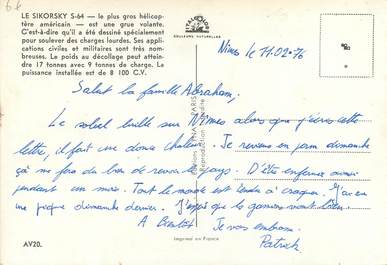 6f
LE SIKORSKY S-64 — le plus gros hélicop-
tère américain — est une grue volante.
C'est-à-dire qu'il a été dessiné spécialement
pour soulever des charges lourdes. Ses ap-
plications civiles et militaires sont très nom-
breuses. Le poids au décollage peut attein-
dre 17 tonnes avec 9 tonnes de charge. La
puissance installée est de 8 100 C.V.
COULEURS NATURELLES
Nîmes le 11.02.76
Salut la famille Abraham,
Le soleil brille sur Nîmes alors que j'écris cette
lettre, il fait une douce chaleur. Je reviens en perm dimanche
ça me fera du bien de revoir le pays. D'être enfermé ainsi
pendant un mois. Tout le monde est tendu à craquer. J'ai eu
une piqûre dimanche dernier. J'espère que les gamins vont bien.
A Bientôt Je vous embrasse
Patrick
AV20.
Imprimé en France